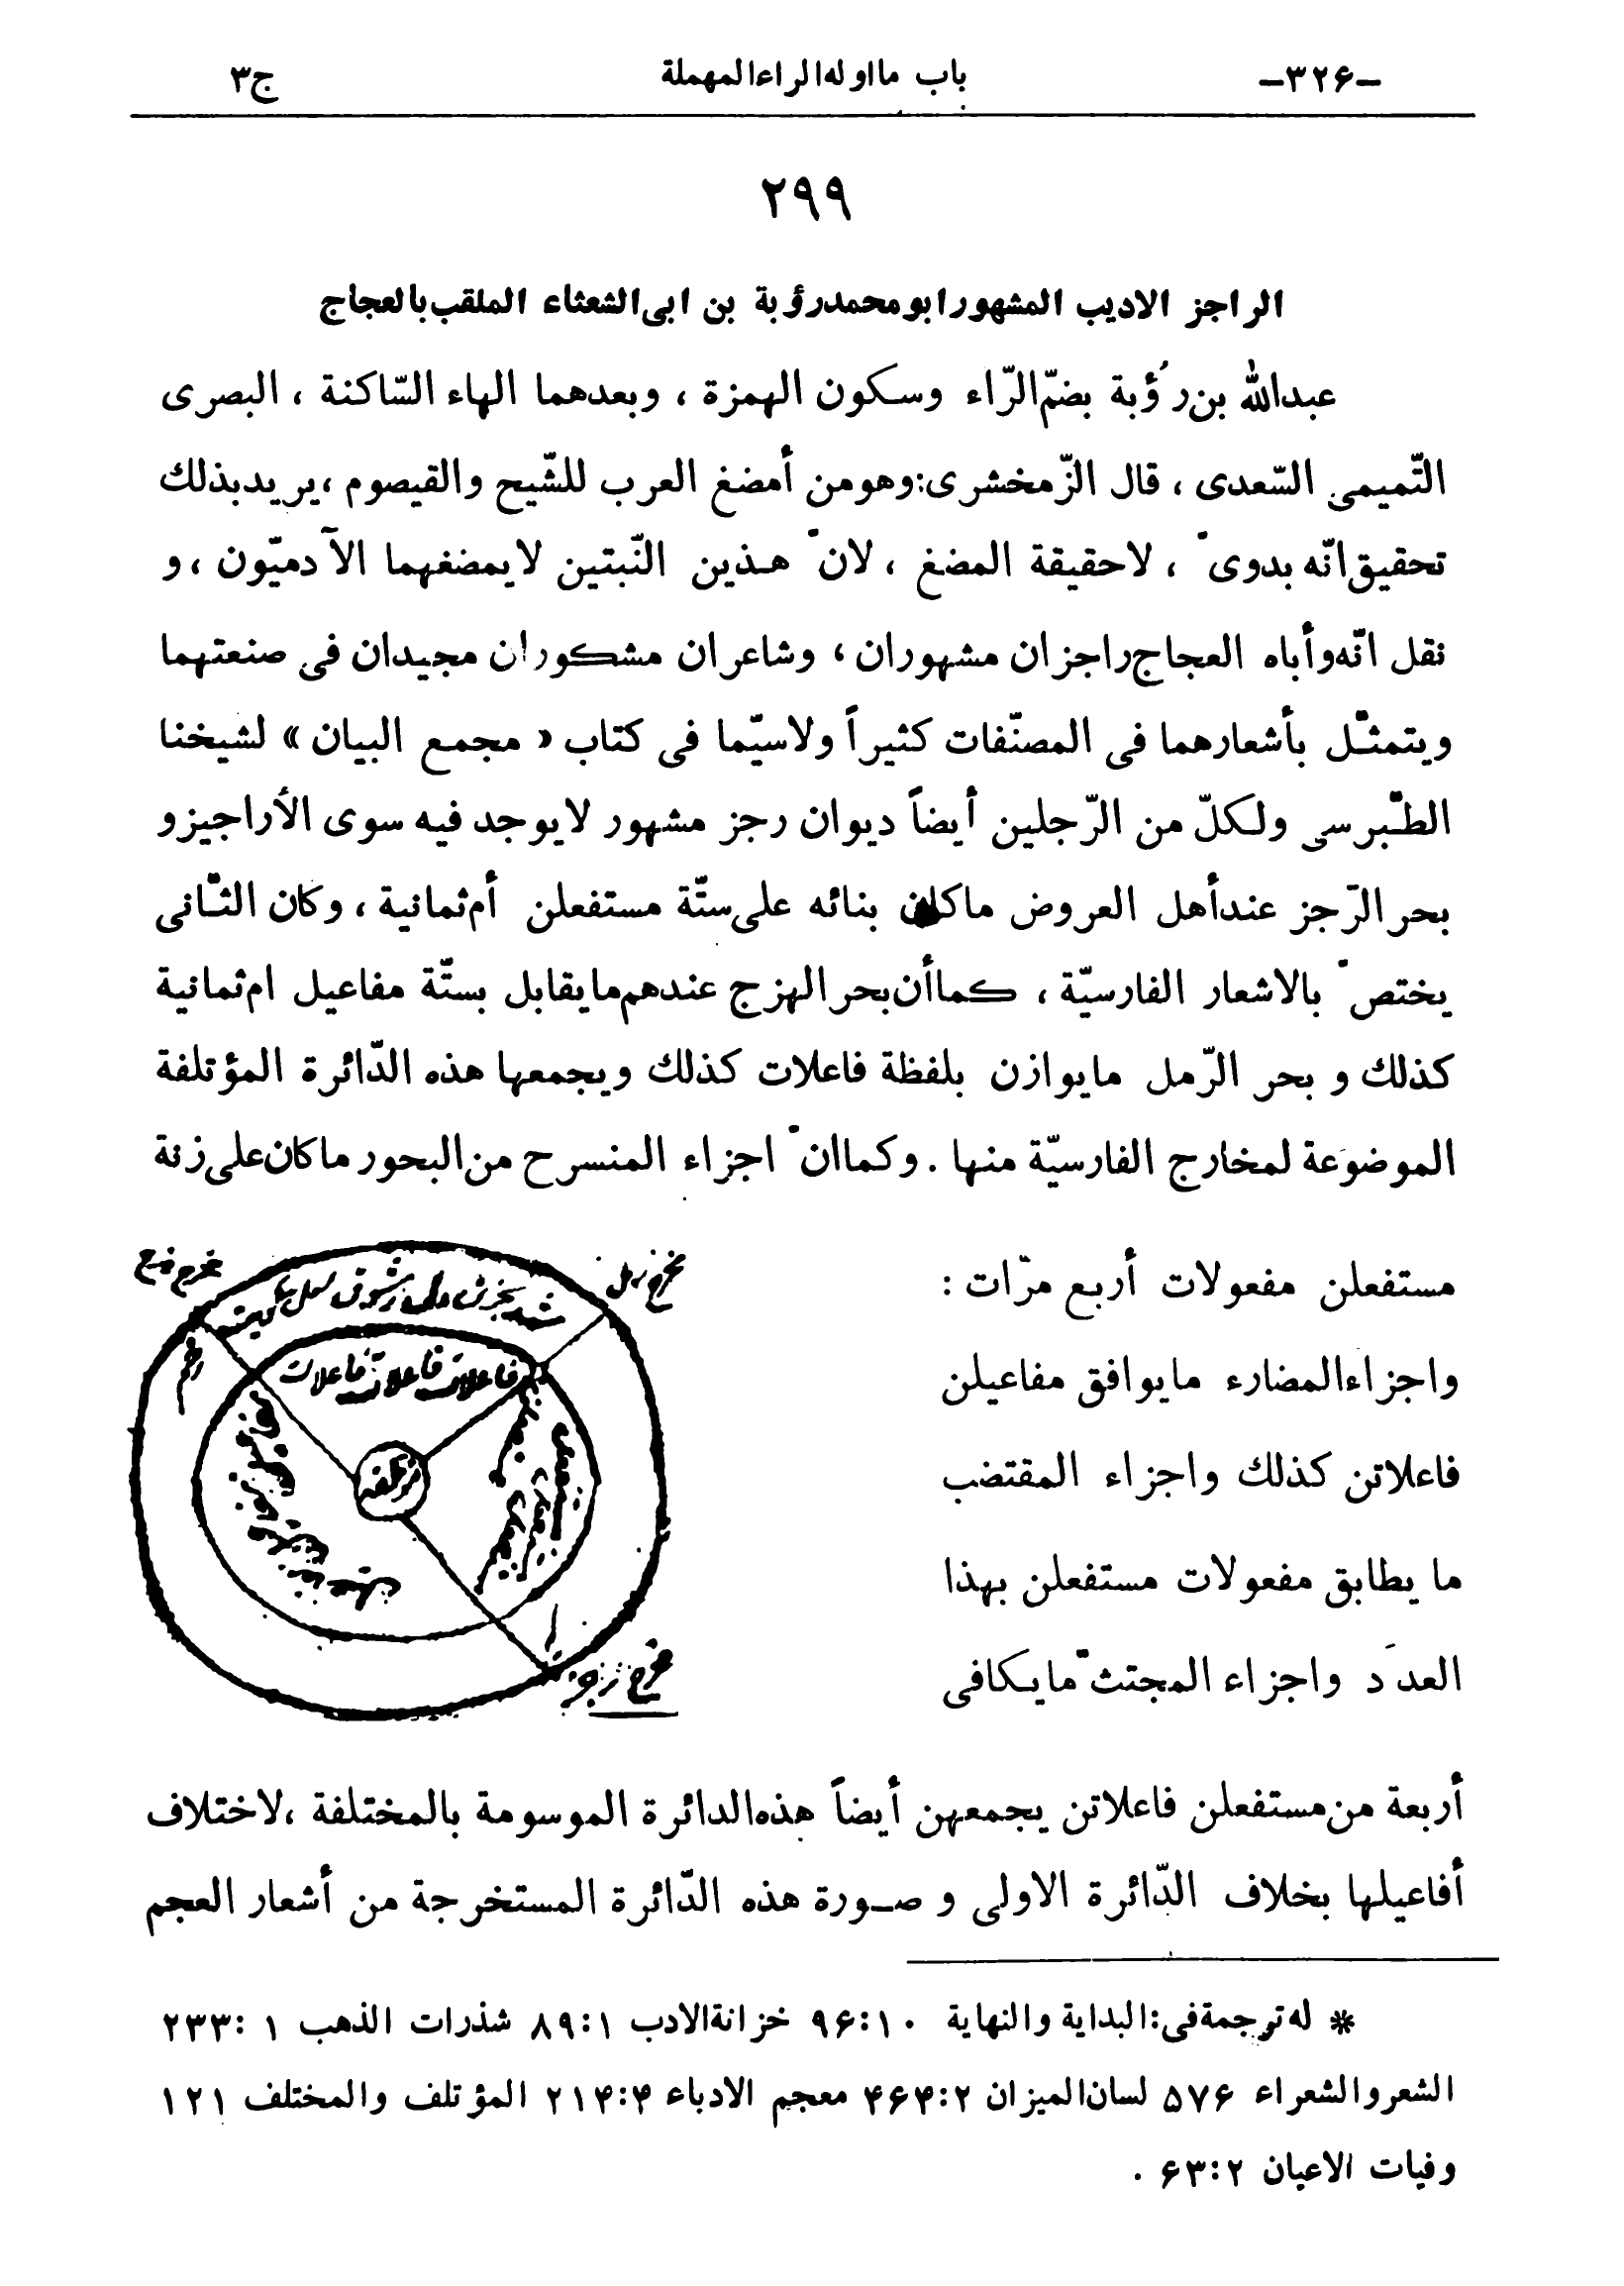 -۳۲۶- باب مااوله الراء المهملة ج۳
۲۹۹
الراجز الاديب المشهور ابو محمد رؤبة بن ابى الشعثاء الملقب بالعجاج
عبدالله بن رُؤبة بضمّ الرّاء وسكون الهمزة ، وبعدهما الهاء السّاكنة ، البصرى
التّميمى السّعدى ، قال الزّمخشرى: وهو من أمضغ العرب للشّيح والقيصوم ، يريد بذلك
تحقيق انّه بدوىّ ، لاحقيقة المضغ ، لانّ هـذين النّبتين لايمضغهما الآدميّون ، و
نقل انّه وأباه العجاج راجزان مشهوران ، وشاعران مشكوران مجيدان فى صنعتهما
ويتمثّـل بأشعارهما فى المصنّفات كثيراً ولاسيّما فى كتاب « مجمع البيان » لشيخنا
الطّبرسى ولكلّ من الرّجلين أيضاً ديوان رجز مشهور لايوجد فيه سوى الأراجيز و
بحر الرّجز عند أهل العروض ماكان بنائه على ستّة مستفعلن أم ثمانية ، وكان الثّـانى
يختصّ بالاشعار الفارسيّة ، كما أن بحر الهزج عندهم مايقابل بستّة مفاعيل ام ثمانية
كذلك و بحر الرّمل مايوازن بلفظة فاعلات كذلك ويجمعها هذه الدّائرة المؤتلفة
الموضوعة لمخارج الفارسيّة منها . وكما انّ اجزاء المنسرح من البحور ماكان على زنة
مستفعلن مفعولات أربع مرّات :
واجزاء المضارء مايوافق مفاعيلن
فاعلاتن كذلك واجزاء المقتضب
ما يطابق مفعولات مستفعلن بهذا
العدد واجزاء المجتثّ مايكافى
مخرج رمل
فاعلات فاعلات فاعلات
مخرج رجز
أربعة من مستفعلن فاعلاتن يجمعهن أيضاً هذه الدائرة الموسومة بالمختلفة ، لاختلاف
أفاعيلها بخلاف الدّائرة الاولى و صـورة هذه الدّائرة المستخرجة من أشعار العجم
* له ترجمة فى: البداية والنهاية ۱۰:۹۶ خزانة الادب ۱:۸۹ شذرات الذهب ۱ :۲۳۳
الشعر والشعراء ۵۷۶ لسان الميزان ۲:۴۶۴ معجم الادباء ۴:۲۱۴ المؤتلف والمختلف ۱۲۱
وفيات الاعيان ۲:۶۳ .